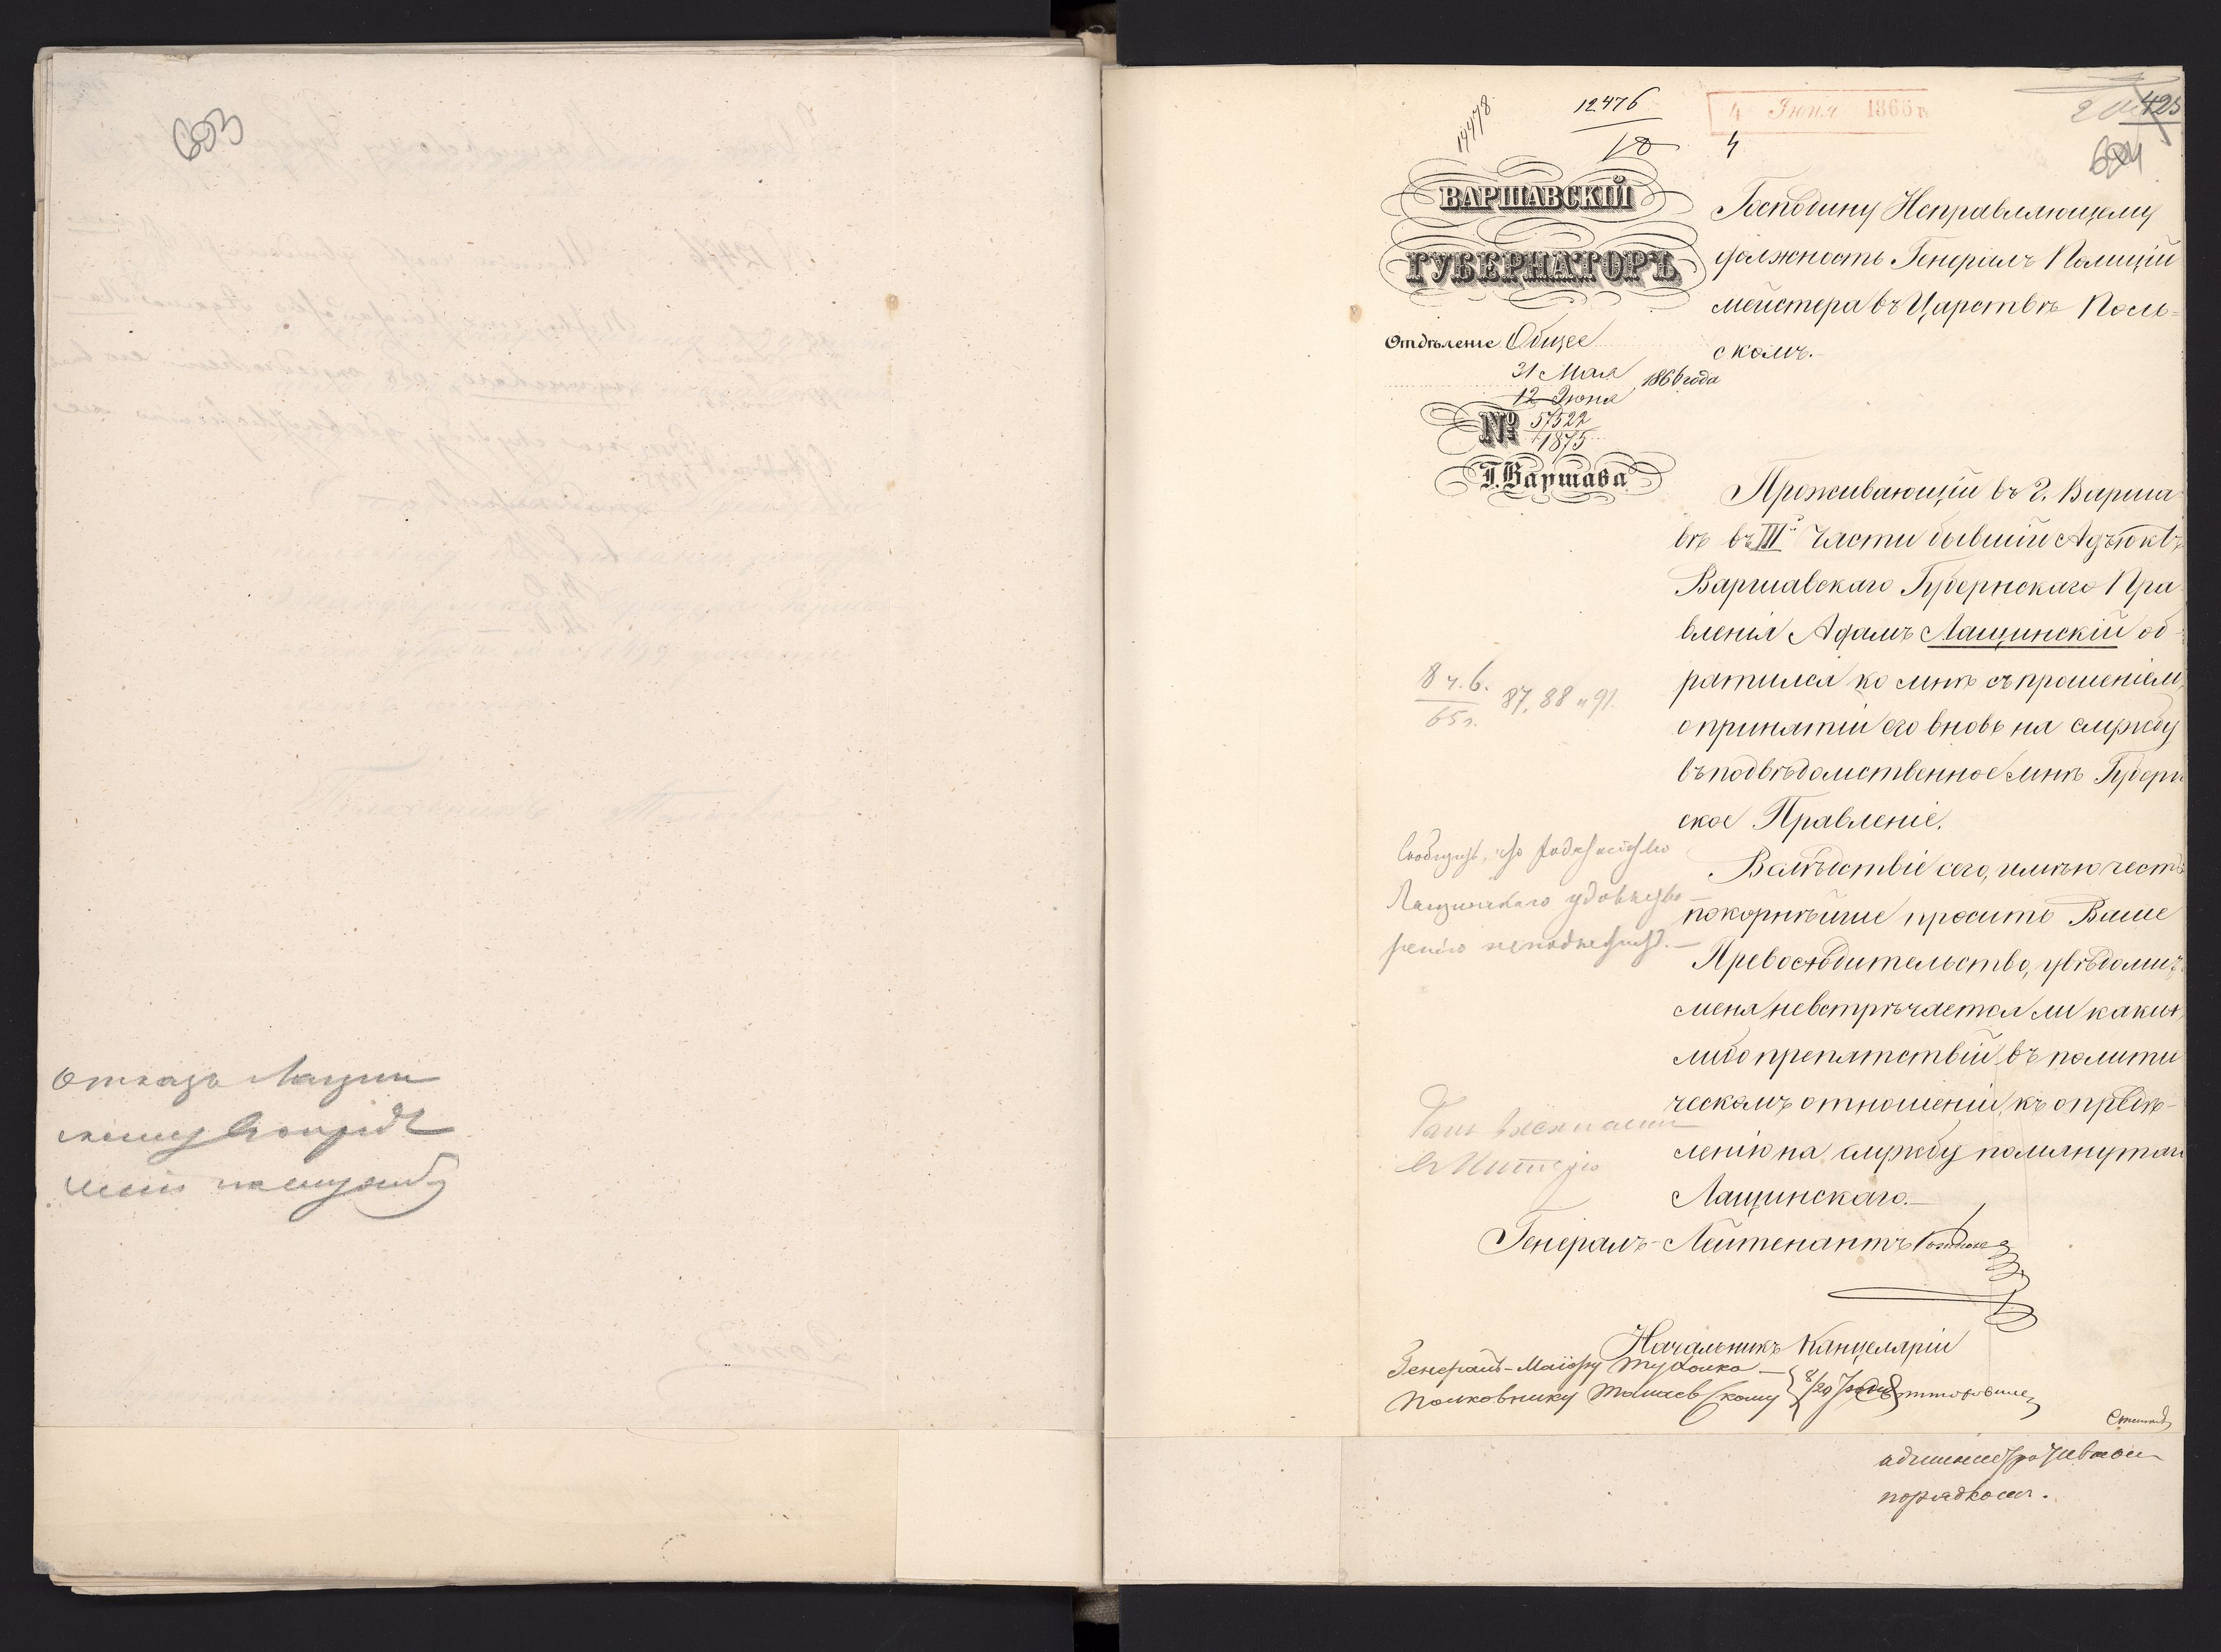 603
Отказъ Лащин
скому
12476
18
12478
4 Іюня 1866 г.
4
425
604
ВАРШАВСКІЙ
ГУБЕРНАТОРЪ
Отдѣленіе Общее
31 Мая
12 Іюня
1866 года
№ 57522
1875
Г. Варшава
Господину Исправляющему
должность Генералъ Полицій
мейстера въ Царствѣ Поль-
скомъ.
Проживающій въ г. Варша
вѣ въ III й Части бывшій Адъюктъ
Варшавскаго Губернскаго Пра
вленія Адамъ Лащинскій об-
ратился ко мнѣ съ прошеніем
о принятіи его вновь на службу
въ подвѣдомственное мнѣ Губерн
ское Правленіе.
Вслѣдствіе сего, имѣю честь
покорнѣйше просить Ваше
Превосходительство, увѣдомить
меня, не встрѣчается ли каких
либо препятствій въ полити
ческомъ отношеніи, къ опредѣ-
ленію на службу помянутаго
Лащинскаго.-
Генералъ-Лейтенантъ
Начальникъ Канцеляріи
8 ч. 6. 87, 88 и 91.
65 г.
Сообщить, что ходатайство
Лащинскаго удовлетво-
ренію неподлежитъ.-
Генералъ-Маіору Тухолко
Полковнику
8/20 Іюня
административнымъ
порядкомъ.